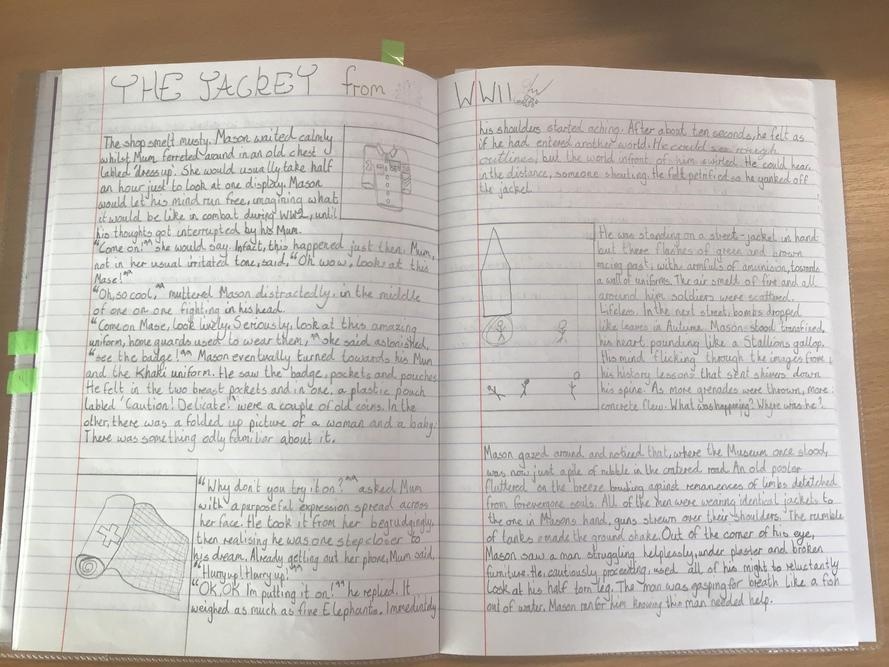 THE JACKET from WWII
The shop smelt musty. Mason waited calmly
whilst Mum ferreted around in an old chest
labled dress up. She would usually take half
an hour just to look at one display. Mason
would let his mind run free, imagining what
it would be like in combat during WW2, until
his thoughts got interrupted by his Mum.
"Come on!" she would say. Infact, this happened just then. Mum,
not in her usual irritated tone, said, "Oh wow, look at this
Mase!"
"Oh, so cool," muttered Mason distractedly, in the middle
of one on one fighting in his head.
"Come on Mase, look lively. Seriously, look at this amazing
uniform, home guards used to wear them," she said astonished,
"see the badge!" Mason eventually turned towards his Mum
and the Khaki uniform. He saw the badge, pockets and pouches.
He felt in the two breast pockets and in one, a plastic pouch
labled 'Caution! Delicate!' were a couple of old coins. In the
other, there was a folded up picture of a woman and a baby.
There was something odly familiar about it.
"Why don't you try it on?" asked Mum
with a purposeful expression spread across
her face. He took it from her begrudgingly,
then realising he was one step closer to
his dream. Already getting out her phone, Mum said,
"Hurry up! Hurry up!"
"OK, OK I'm putting it on!" he replied. It
weighed as much as five Elephants. Immediately
his shoulders started aching. After about ten seconds, he felt as
if he had entered another world. He could see rough
outlines, but the world infront of him swirled. He could hear,
in the distance, someone shouting. He felt petrified so he yanked off
the jacket.
He was standing on a street-jacket in hand
but there flashes of green and brown
racing past, with armfuls of amunision, towards
a wall of uniforms. The air smelt of fire and all
around him soldiers were scattered.
Lifeless. In the next street, bombs dropped
like leaves in Autumn. Mason stood transfixed,
his heart pounding like a Stallions gallop,
his mind flicking through the images from
his history lessons that sent shivers down
his spine. As more grenades were thrown, more
concrete flew. What was happening? Where was he?
Mason gazed around and noticed that, where the Museum once stood,
was now just a pile of rubble in the cratered road. An old poster
fluttered on the breeze against remanences of limbs detatched
from forevergone souls. All of the men were wearing identical jackets to
the one in Masons hand, guns strewn over their shoulders. The rumble
of tanks made the ground shake. Out of the corner of his eye,
Mason saw a man struggling helplessly, under plaster and broken
furniture. He, cautiously proceeding, used all of his might to reluctantly
look at his half torn leg. The man was gasping for breath like a fish
out of water. Mason ran for him knowing this man needed help.